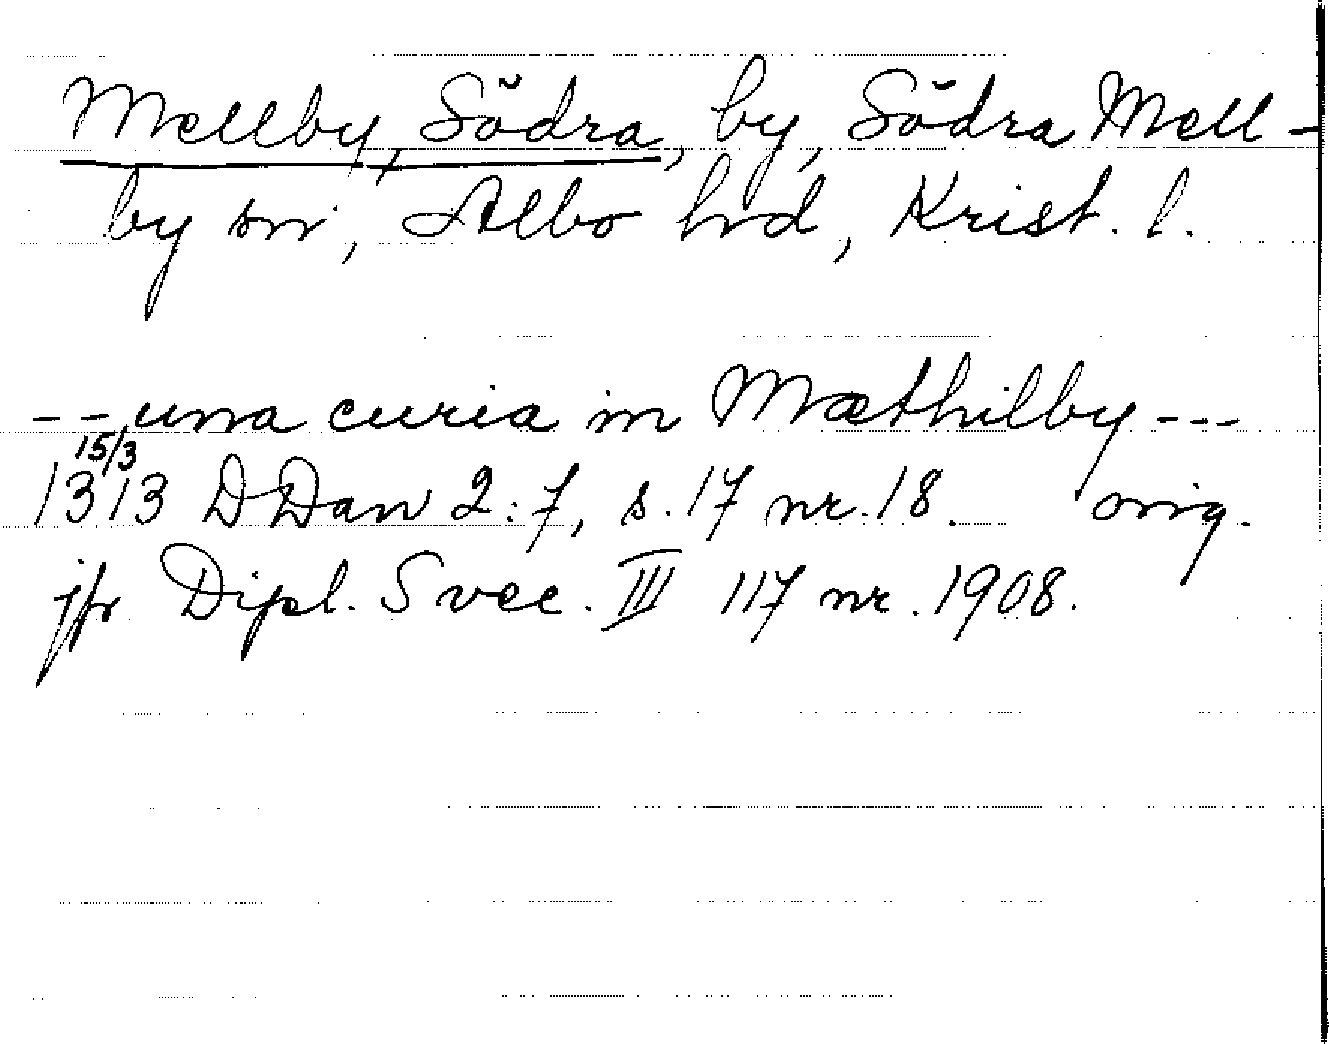 Mellby, Södra, by, Södra Mell-
by sn, Albo hd, Krist. l.
-- una curia in Mæthilby ---
15/3
1313 DDan 2:7, s. 17 nr. 18. orig.
jfr Dipl. Svec. III 117 nr. 1908.